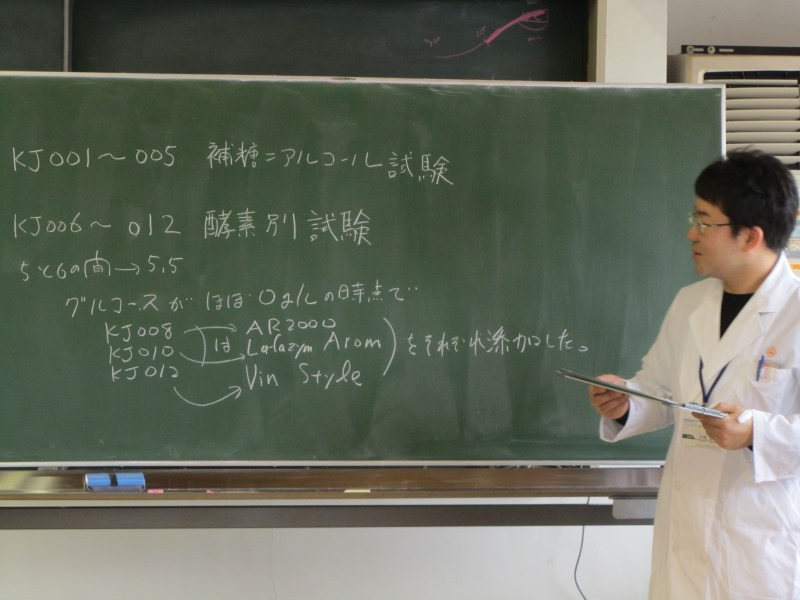 KJ001～005 補糖=アルコール試験
KJ006～012 酵素別試験
5と6の間→5.5
グルコースが ほぼ 0g/Lの時点で‥
KJ008 → AR2000
KJ010 は → Lafazym Arom をそれぞれ添加した。
KJ012 → Vin Style